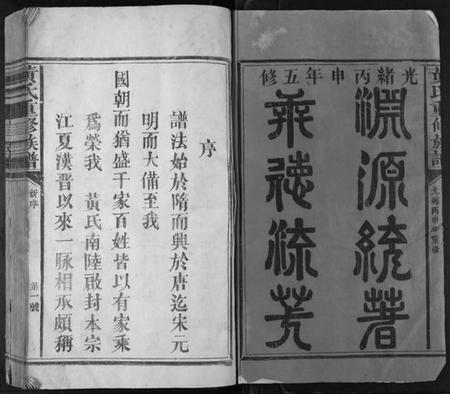 黃氏重修族譜
光緒丙申年五修
淵源統著
奕德流芳
序
譜法始於隋而興於唐迄宋元
明而大備至我
國朝而猶盛千家百姓皆以有家乘
爲榮我 黃氏南陸啟封本宗
江夏漢晉以來一脉相承頗稱
黃氏重修族譜
新序
第一號